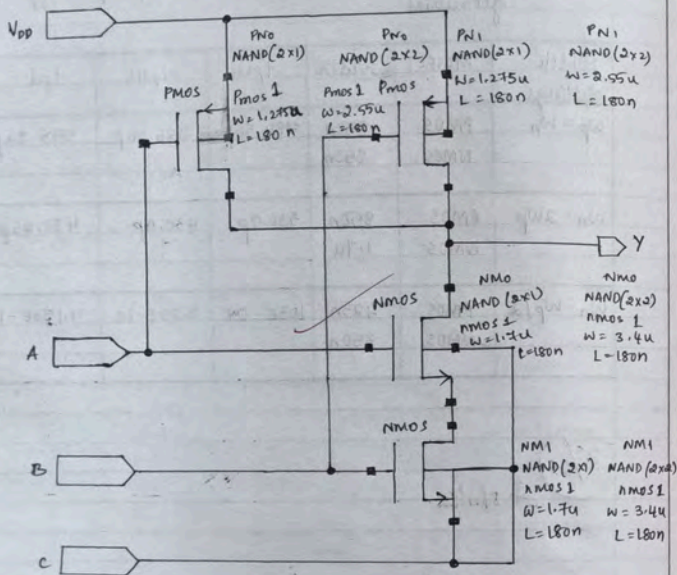 VDD
PN0
NAND(2x1)
PMOS
Pmos 1
W=1.275u
L=180n
PN0
NAND(2x2)
Pmos 1
Pmos
W=2.55u
L=180n
PN1
NAND(2x1)
W=1.275u
L=180n
PN1
NAND(2x2)
W=2.55u
L=180n
Y
NMOS
NM0
NAND(2x1)
nmos 1
W=1.7u
L=180n
NM0
NAND(2x2)
nmos 1
W=3.4u
L=180n
A
NMOS
B
NM1
NAND(2x1)
nmos 1
W=1.7u
L=180n
NM1
NAND(2x2)
nmos 1
W=3.4u
L=180n
C